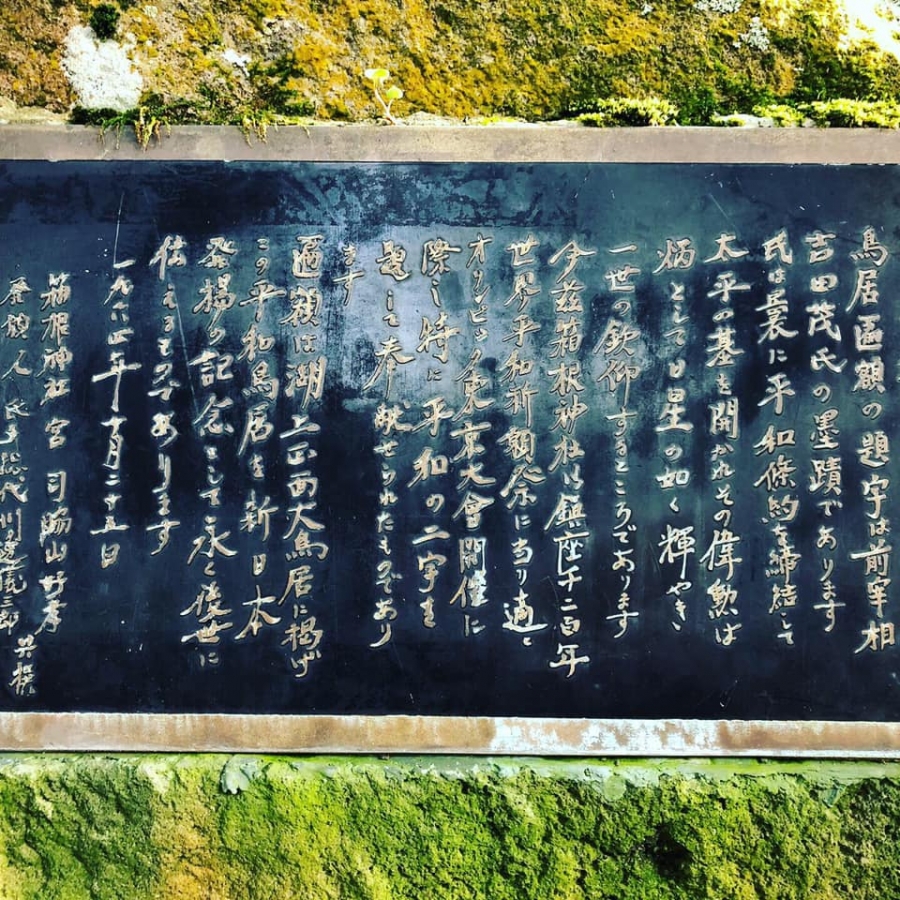 鳥居匾額の題字は前宰相
吉田茂氏の墨蹟であります
氏は曩に平和條約を締結して
太平の基を開かれその偉勲は
炳として日星の如く輝やき
一世の欽仰するところであります
今茲箱根神社は鎮座千二百年
世界平和祈願祭に当り適と
オリンピック東京大會開催に
際し特に平和の二字を
題して奉献せられたものであり
ます
匾額は湖上正面大鳥居に掲げ
この平和鳥居を新日本
発揚の記念として永く後世に
伝えるものであります
一九六四年十月二十五日
箱根神社宮司
氏子総代